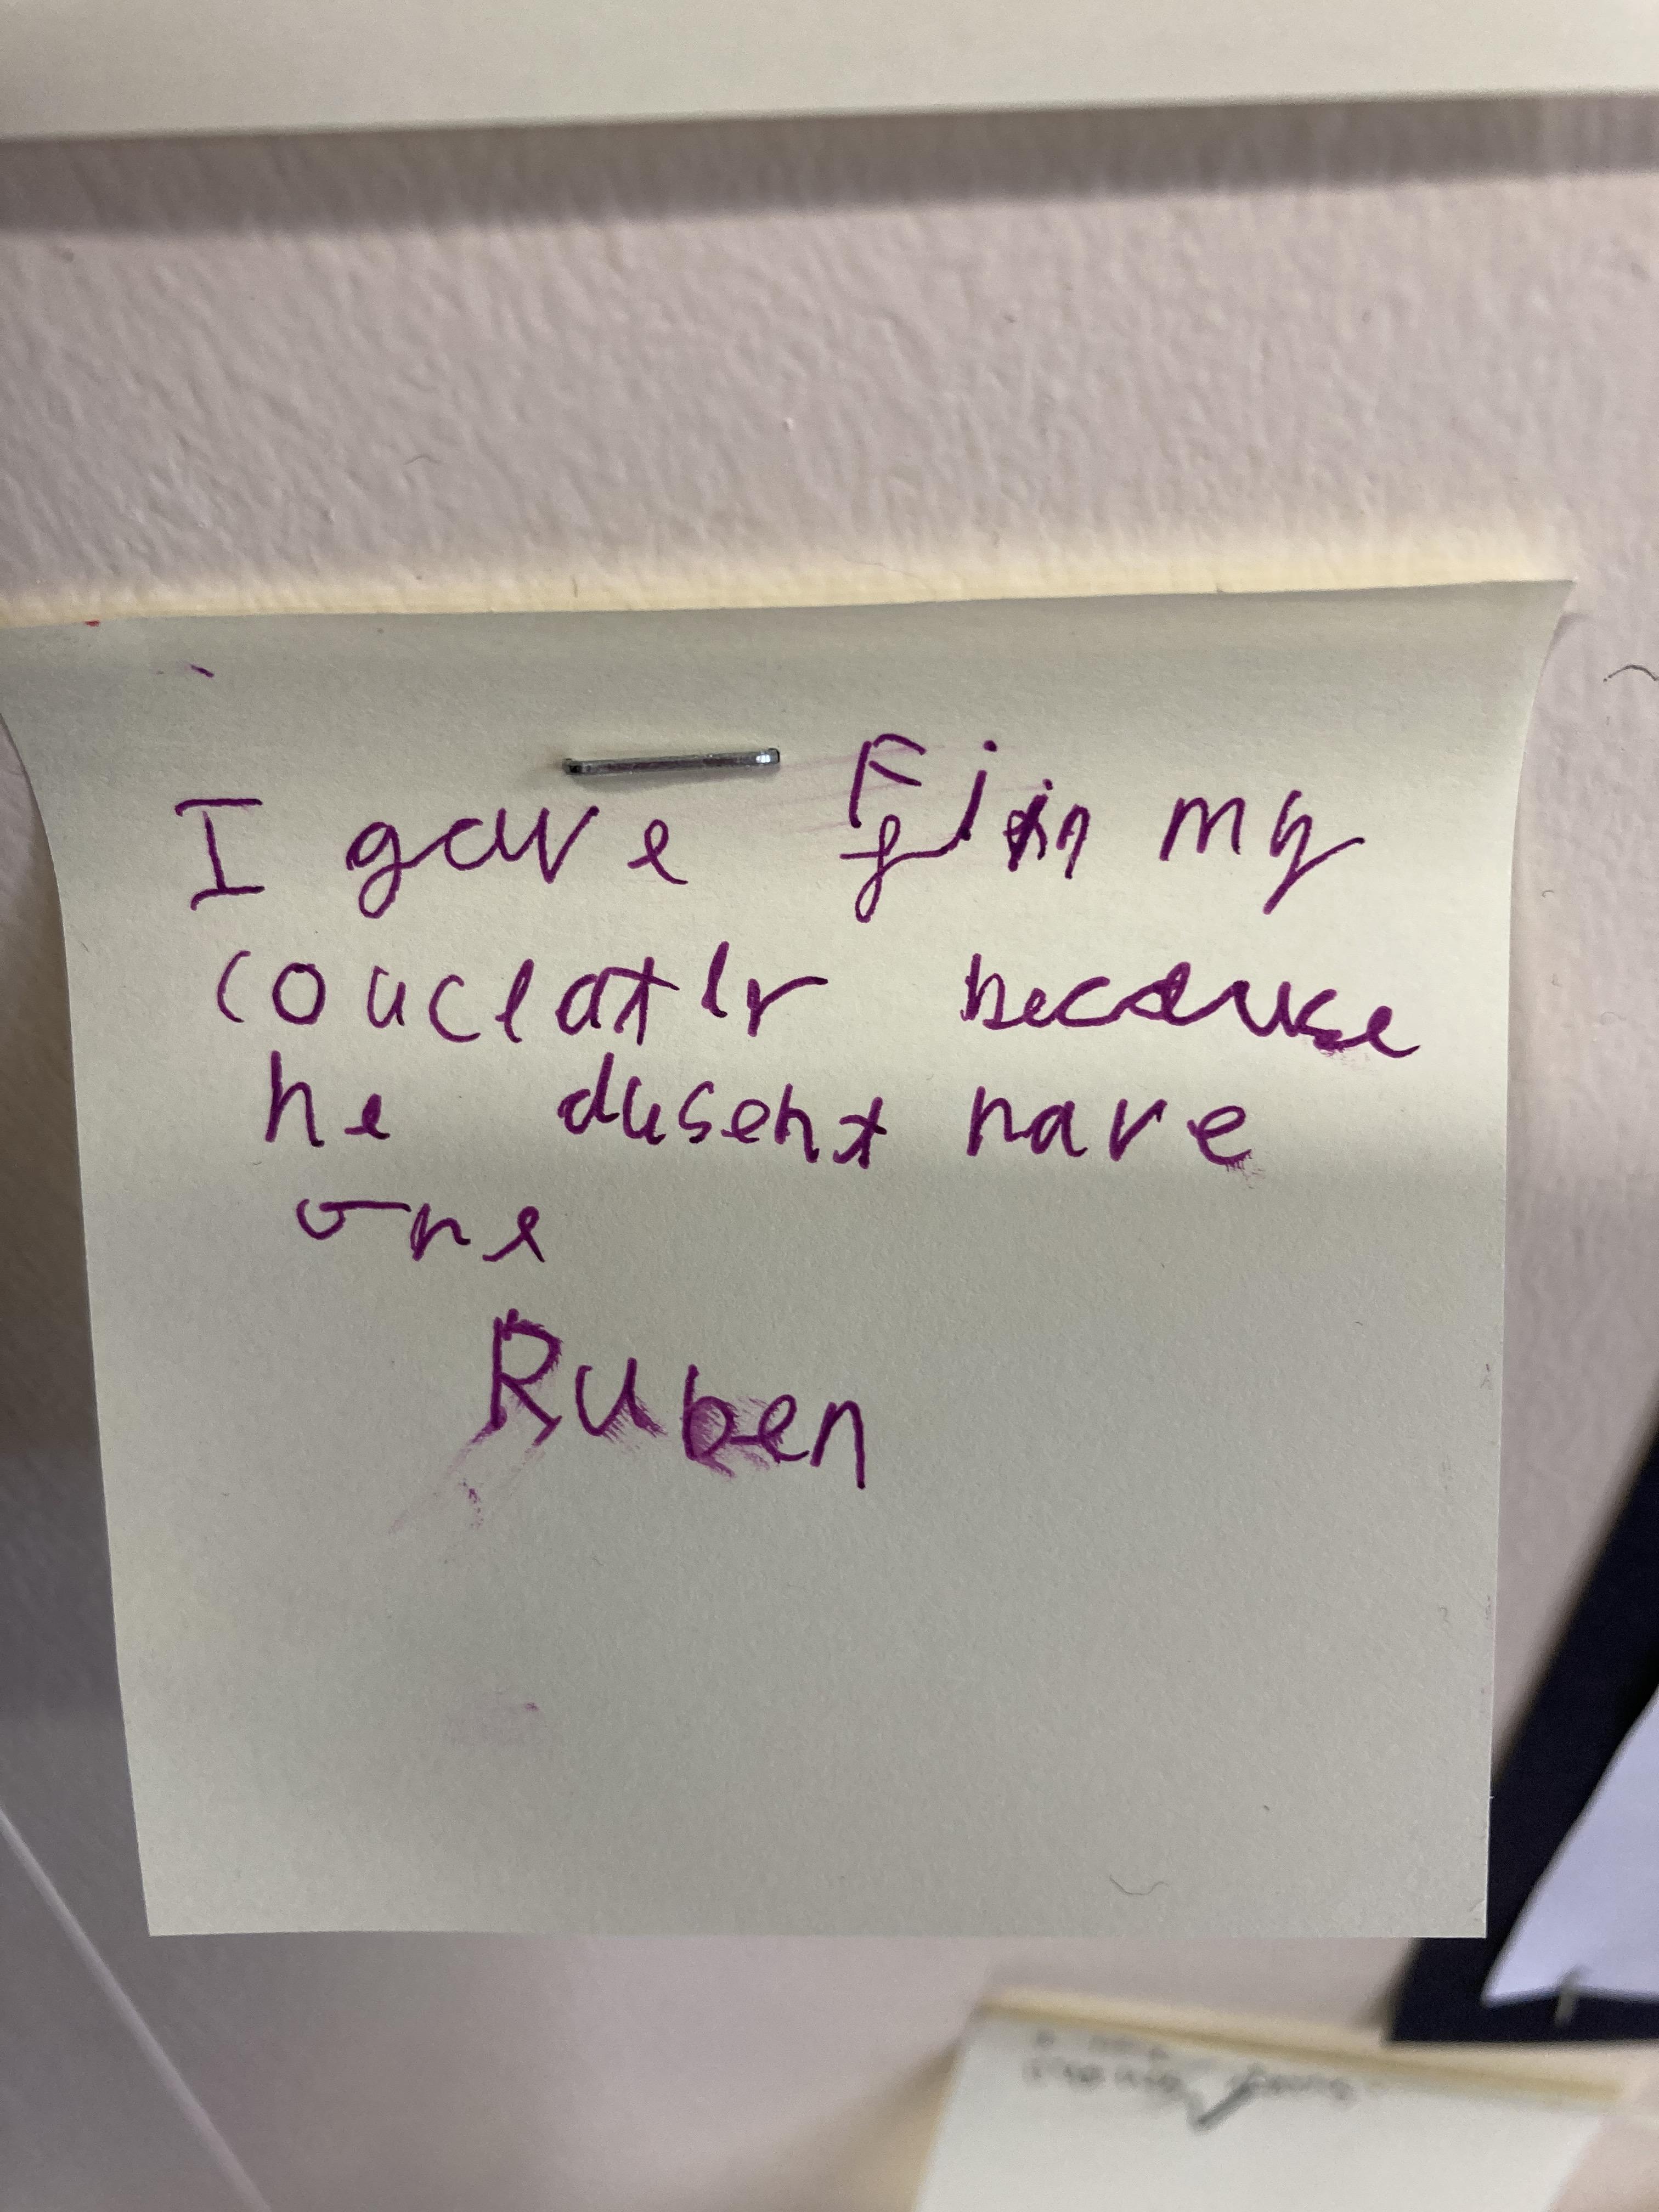 I gave Finn my
couclatlr because
he dusent have
one
Ruben